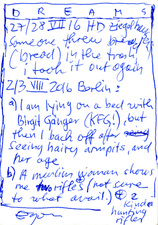 DREAMS
27/28 VII 16 HD
someone threw
(bread) in the trash,
i took it out again
2/3 VIII 2016 Berlin:
a) I am lying on a bed with
Birgit Gänger (KFG!), but
then I back off after
seeing hairy armpits, and
her age.
b) A muslim woman shows
me rifles (not sure
to what avail). 2
kinda
hunting
rifles